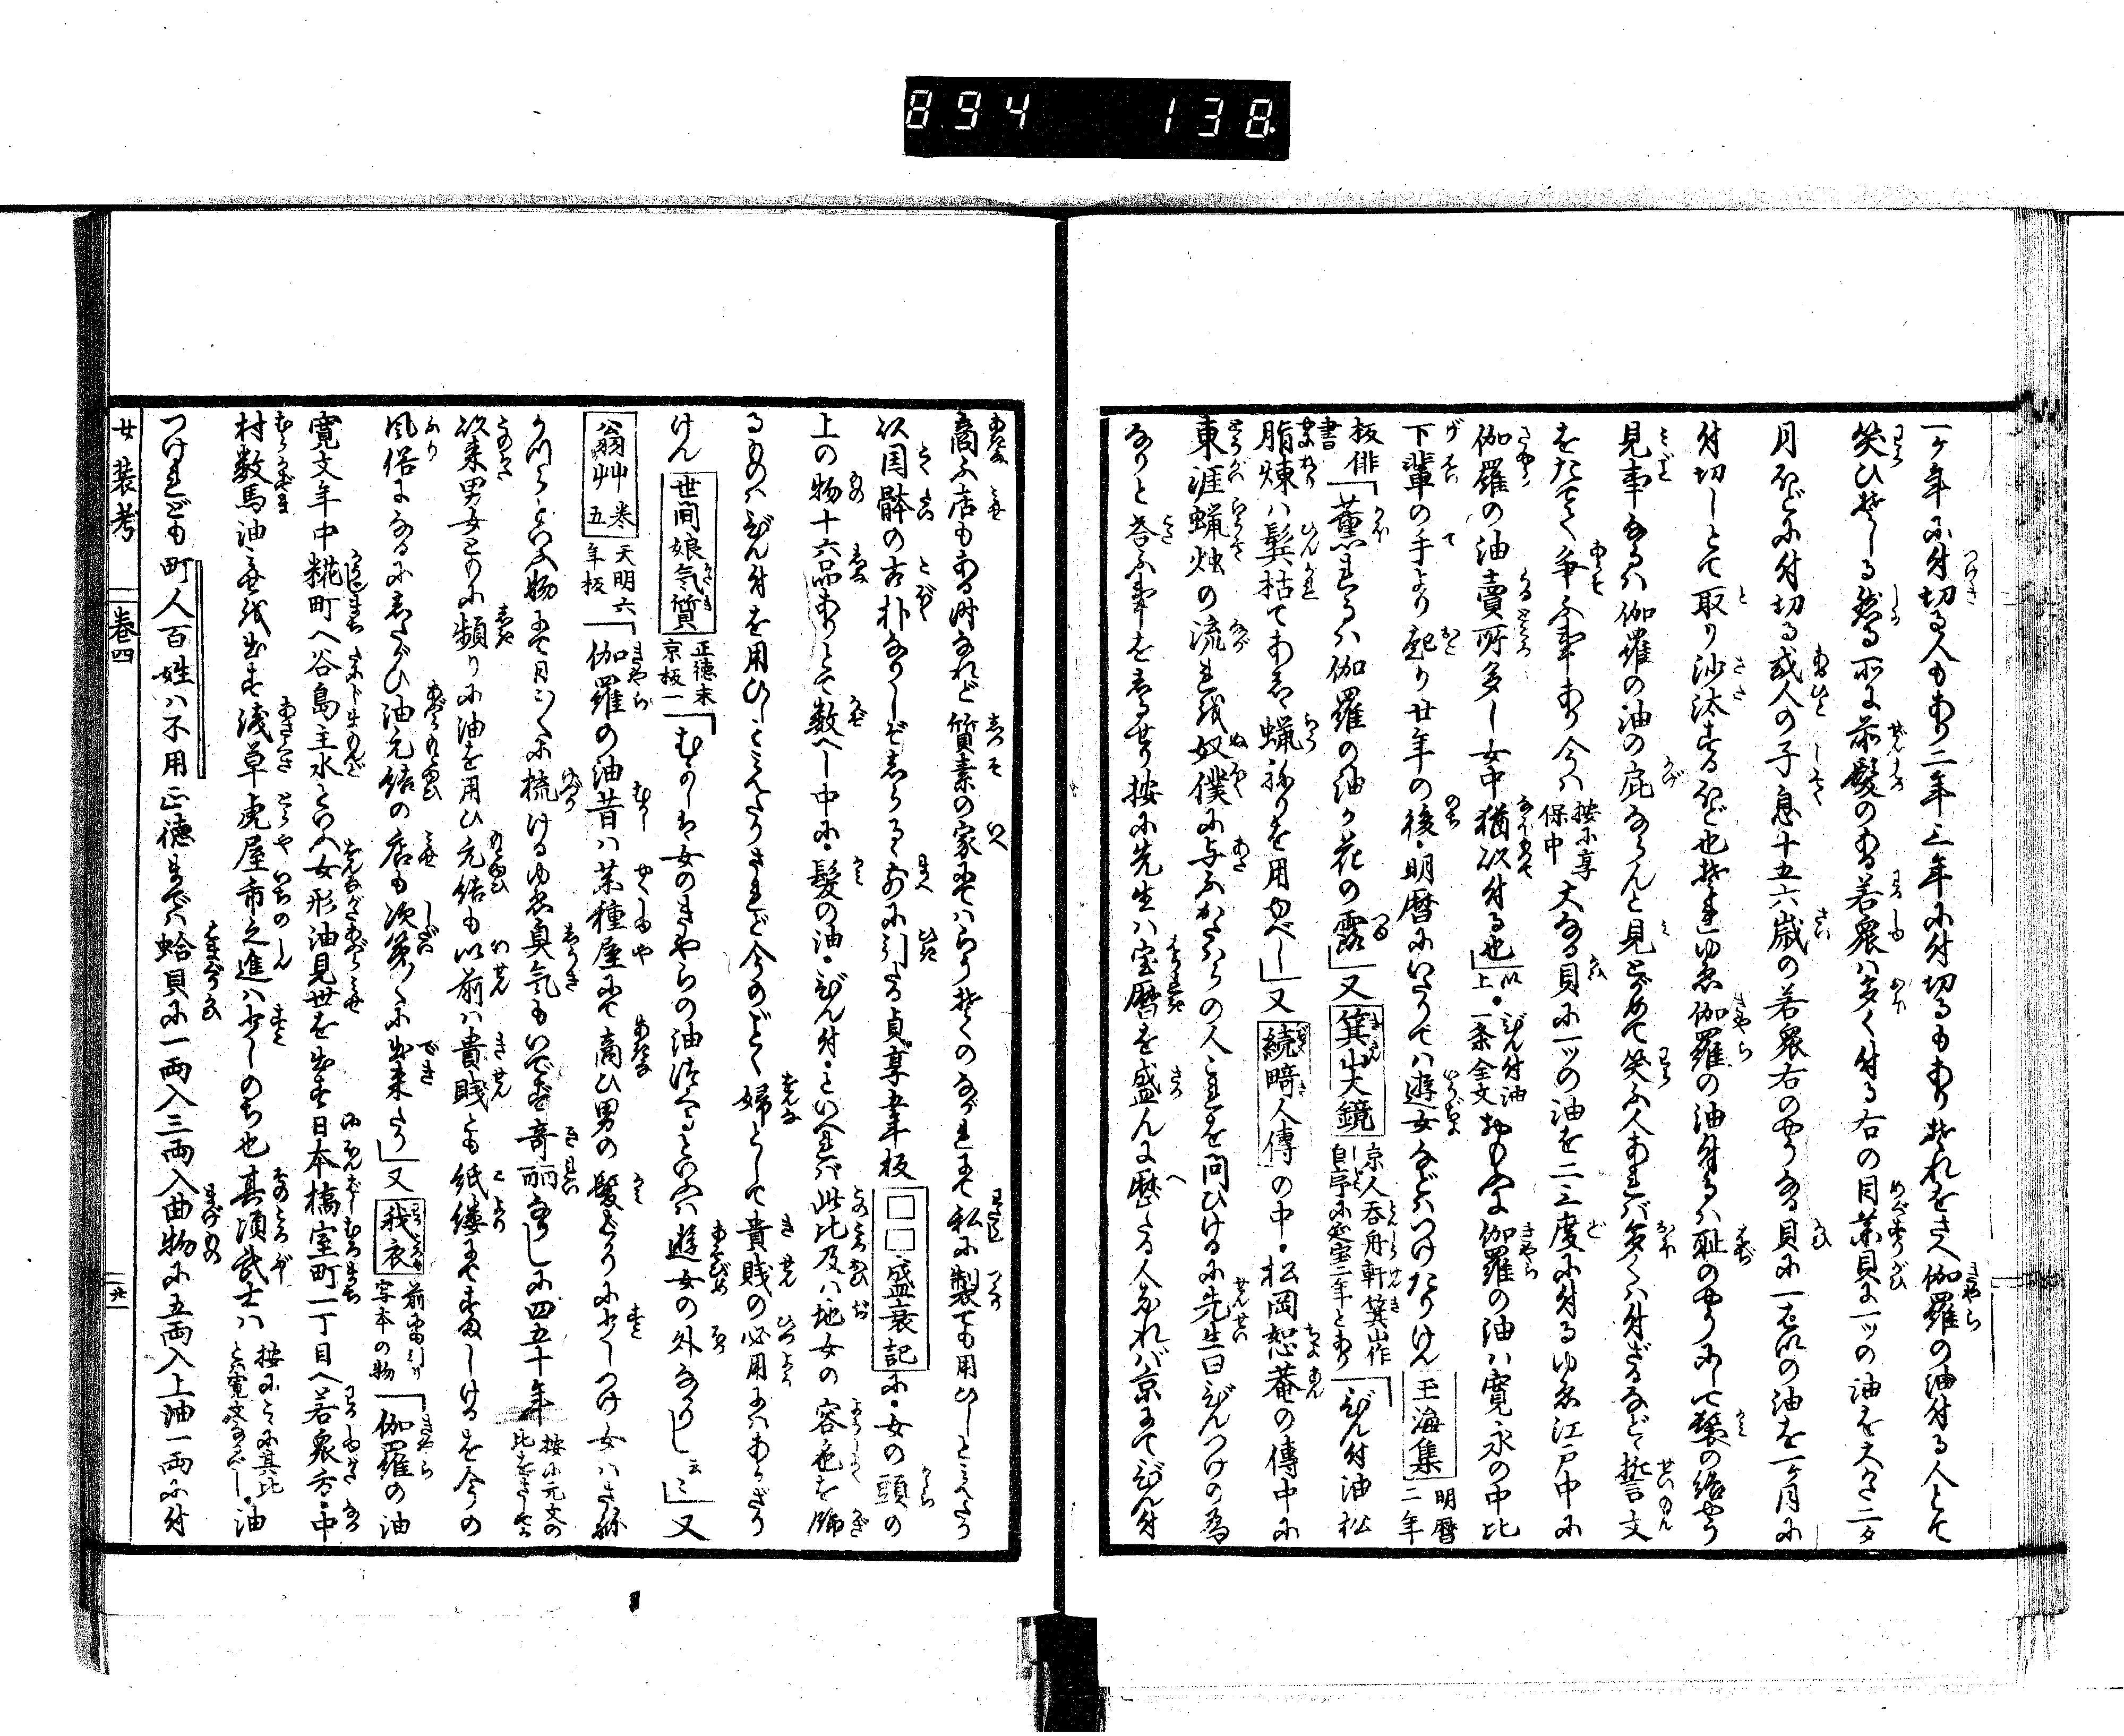 894 138
一ケ年に付切る人もあり二年三年に付切るもありそれをさへ伽羅の油付る人とて
笑ひそしる然る所に前髪のある若衆ハ多く付る右の目薬貝に一ツの油を大かた二タ
月ほどに付切る或人の子息十五六歳の若衆右のやうなる貝に一はいの油を一ケ月に
付切しとて取り沙汰するほど也それゆゑ伽羅の油付るハ恥のやうにして髪の結やう
見事なるハ伽羅の油の庇ならんと見とがめて笑ふ人あれバ多くハ付ざるなどゝ誓文
をたてゝ争ふ事あり今ハ按に享保中大なる貝に一ツの油を二三度に付るゆゑ江戸中に
伽羅の油賣所多し女中猶以付る也」以上・びん付油一条全文おもふに伽羅の油ハ寛永の中比
下輩の手より起り廿年の後・明暦にいたりてハ遊女などハつけたりけん玉海集明暦二年
板俳書「薫するハ伽羅の油か花の露」又箕山大鏡京人呑舟軒箕山作自序に延宝二年とあり「びん付油松
脂煉ハ鬂枯てあし蝋ねりを用ゆべし」又続畸人傳の中・松岡恕菴の傳中に
東涯蝋燭の流れを奴僕に与ふかたハらの人これを問ひけるに先生曰びんつけの為
なりと答ふ事をしるせり按に先生ハ宝暦を盛んに歴たる人なれバ京にてびん付
商ふ店もある時なれど質素の家にてハらうそくのながれにて私に製ても用ひしとみえたり
以国躰の古朴なりしぞしらるゝ前に引たる貞享五年板□□盛衰記に・女の頭の
上の物十六品ありとて数へし中に・髪の油・びん付・といへれバ此比及ハ地女の容色を飾
るものハびん付を用ひしとみえたりされど今のごとく婦として貴賤の必用にハあらざり
けん世間娘気質正徳末京板一「むかしハ女のきやらの油つくるといふハ遊女の外なかりし云々」又
翁艸巻五天明六年板「伽羅の油昔ハ薬種屋にて商ひ男の髪ばかりに少しつけ女ハさね
かづらといふ物にて日々に梳けるゆゑ臭気もいでず奇麗なりしに四五十年按に元文の比をさしていふ
以来男女ともに頻りに油を用ひ元結も以前ハ貴賤とも紙縷にてすましけるを今の
風俗になるにしたがひ油元結の店も次第々に出来たり」又我衣前にも引り写本の物「伽羅の油
寛文年中糀町へ谷島主水といふ女形油見世を出す日本橋室町一丁目へ若衆方・中
村数馬油見世を出す浅草虎屋市之進ハ少しのち也其頃武士ハ按に云に其比とハ寛文なるべし・油
つけれども町人百姓ハ不用正徳まで蛤貝に一両入三両入曲物に五両入上油一両に付
女装考　巻四　廿一